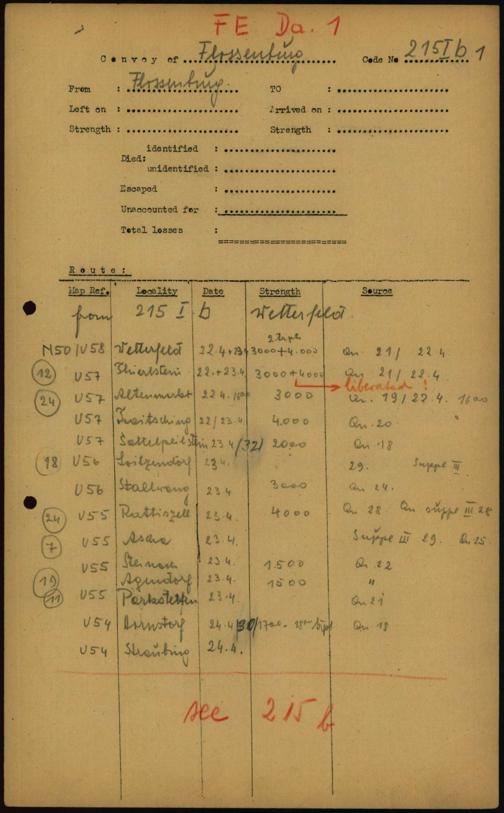 FE Da. 1
Convoy of Flossenburg Code No 215 I b 1
From : Flossenburg TO :
Left on : Arrived on :
Strength : Strength :
identified :
Died:
unidentified :
Escaped :
Unaccounted for :
Total losses :
Route:
Map Ref. Locality Date Strength Source
from 215 I b Wetterfeld
N50/U58 Wetterfeld 22.4+23.4 3000+4.000 Qn. 21/ 22 4
12 U57 22.+23.4 3000+4000 Qn 21/ 22.4
liberated !
24 U57 Altenmarkt 22 4. 3000 Qn. 19/22.4. 1600
U57 Traitsching 22/23.4. 4.000 Qn. 20
U57 Sattelpeilstein 23 4 /32/ 2000 Qn. 18
18 U56 Loitzendorf 23 4. 29. Suppl III
U56 Stallwang 23 4 3000 Qn 24.
24 U55 Rattiszell 23.4. 4000 Qn 28 Qn suppl III 28
7 U55 Ascha 23.4 Suppl III 29. Qn 25.
U55 Steinach 23.4 1.500 Qn. 22
19 Agendorf 23.4. 1500 "
11 U55 Parkstetten 23.4. Qn 21
U54 Hornstorf 24.4 /30/ 1700- Qn 18
U54 Straubing 24.4.
see 215 b